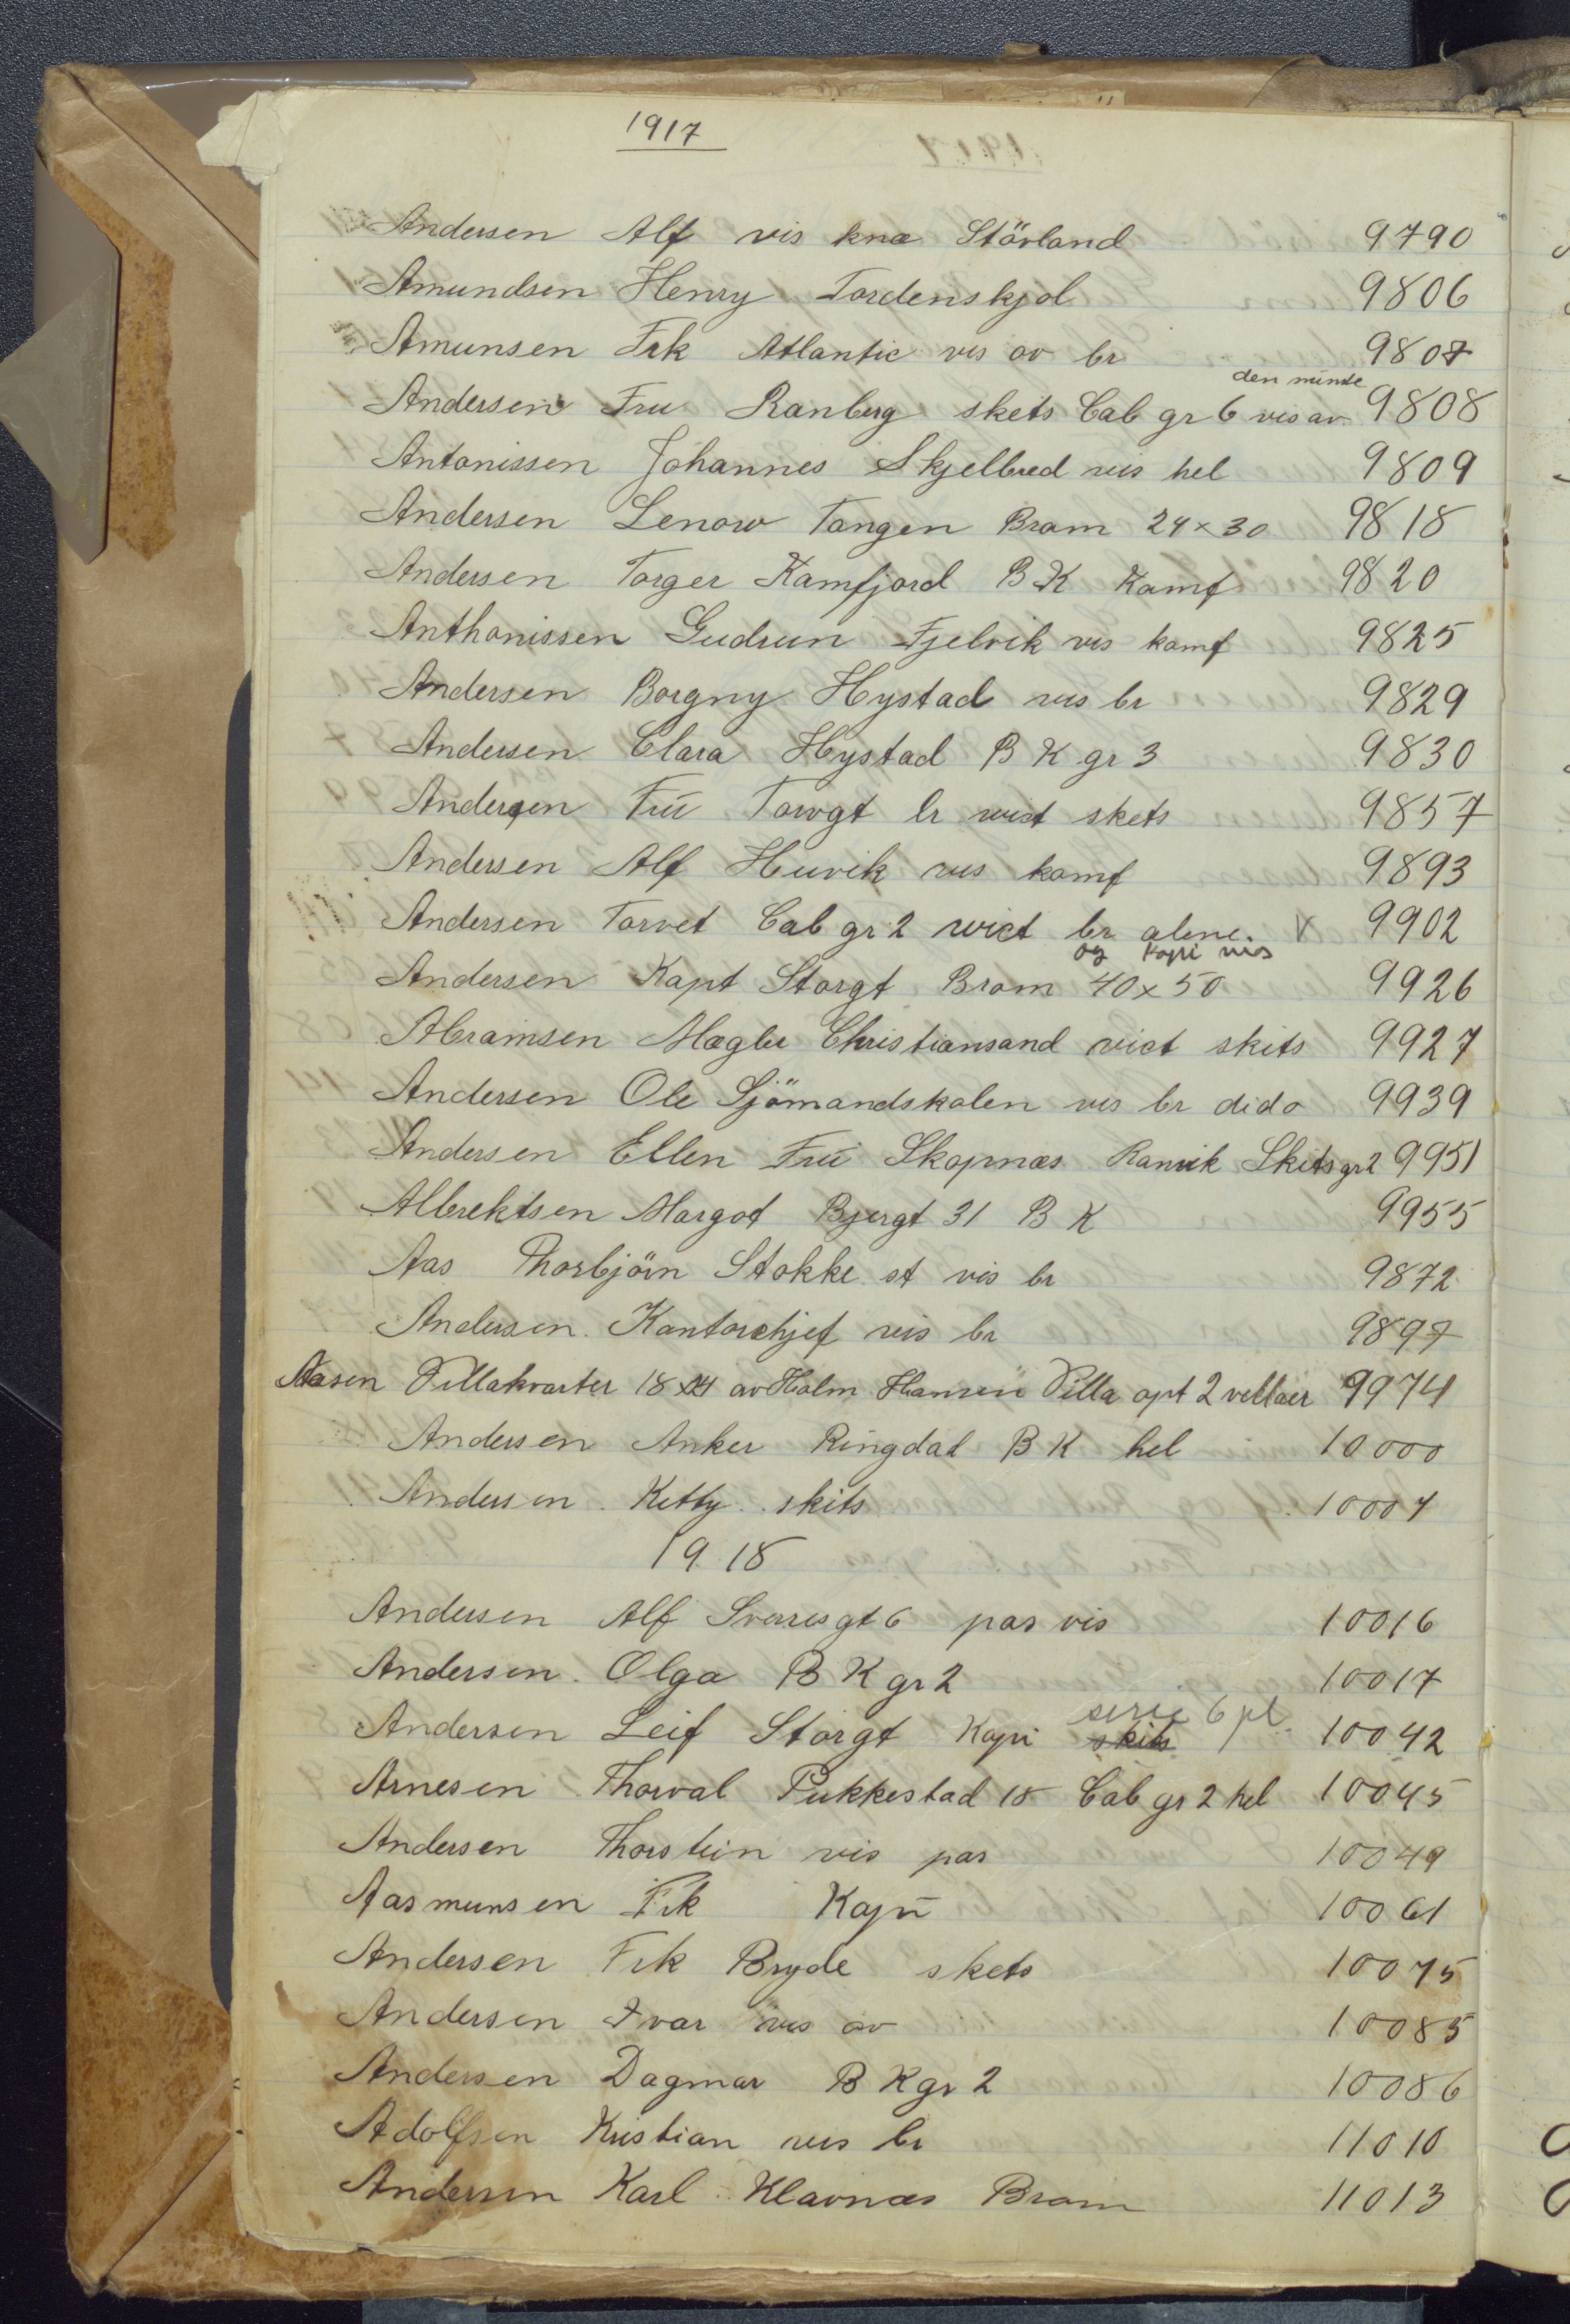 1917
Andersen Alf vis knæ Störland 9790
Amundsen Henry Tordenskjol 9806
Amunsen Frk Atlantic vis av br 9807
den minde
Andersen Fru Ranberg skets Cab gr 6 vis av 9808
Antonissen Johannes Skjelbred vis hel 9809
Andersen Lenow Tangen Brom 24×30 9818
Andersen Torger Kamfjord B K Kamf 9820
Anthonissen Gudrun Fjelvik vis kamf 9825
Andersen Borgny Hystad vis br 9829
Andersen Clara Hystad B K gr 3 9830
Andersen Frü Torvgt br wict skets 9857
Andersen Alf Huvik vis kamf 9893
Andersen Torvet Cab gr 2 wict br alene. V 9902
og Kopi vis
Andersen Kapt Storgt Brom 40×50 9926
Abramsen Mægler Christiansand vict skits 9927
Andersen Ole Sjömandskolen vis br dido 9939
Andersen Ellen Frü Skopnæs Ranvik Skits gr 2 9951
Albrektsen Margot Bjergt 31 B K 9955
Aas Thorbjörn Stokke st vis br 9872
Andersen Kontorchjef vis br 9897
Aasen Villakvarter 18×24 av Holm Hansen Villa opt 2 vellaer 9974
Andersen Anker Ringdal B K hel 10000
Andersen Kitty skits 10007
1918
Andersen Alf Sverresgt 6 pas vis 10016
Andersen Olga B K gr 2 10017
serie 6 pl
Andersen Leif Storgt Kopi skits 10042
Arnesen Thorval Pukkestad 18 Cab gr 2 hel 10045
Andersen Thorstein vis pas 10049
Aasmunsen Frk Kopi 10061
Andersen Frk Bryde skets 10075
Andersen Ivar vis av 10085
Andersen Dagmar B K gr 2 10086
Adolfsen Kristian vis br 11010
Andersen Karl Klavnæs Brom 11013